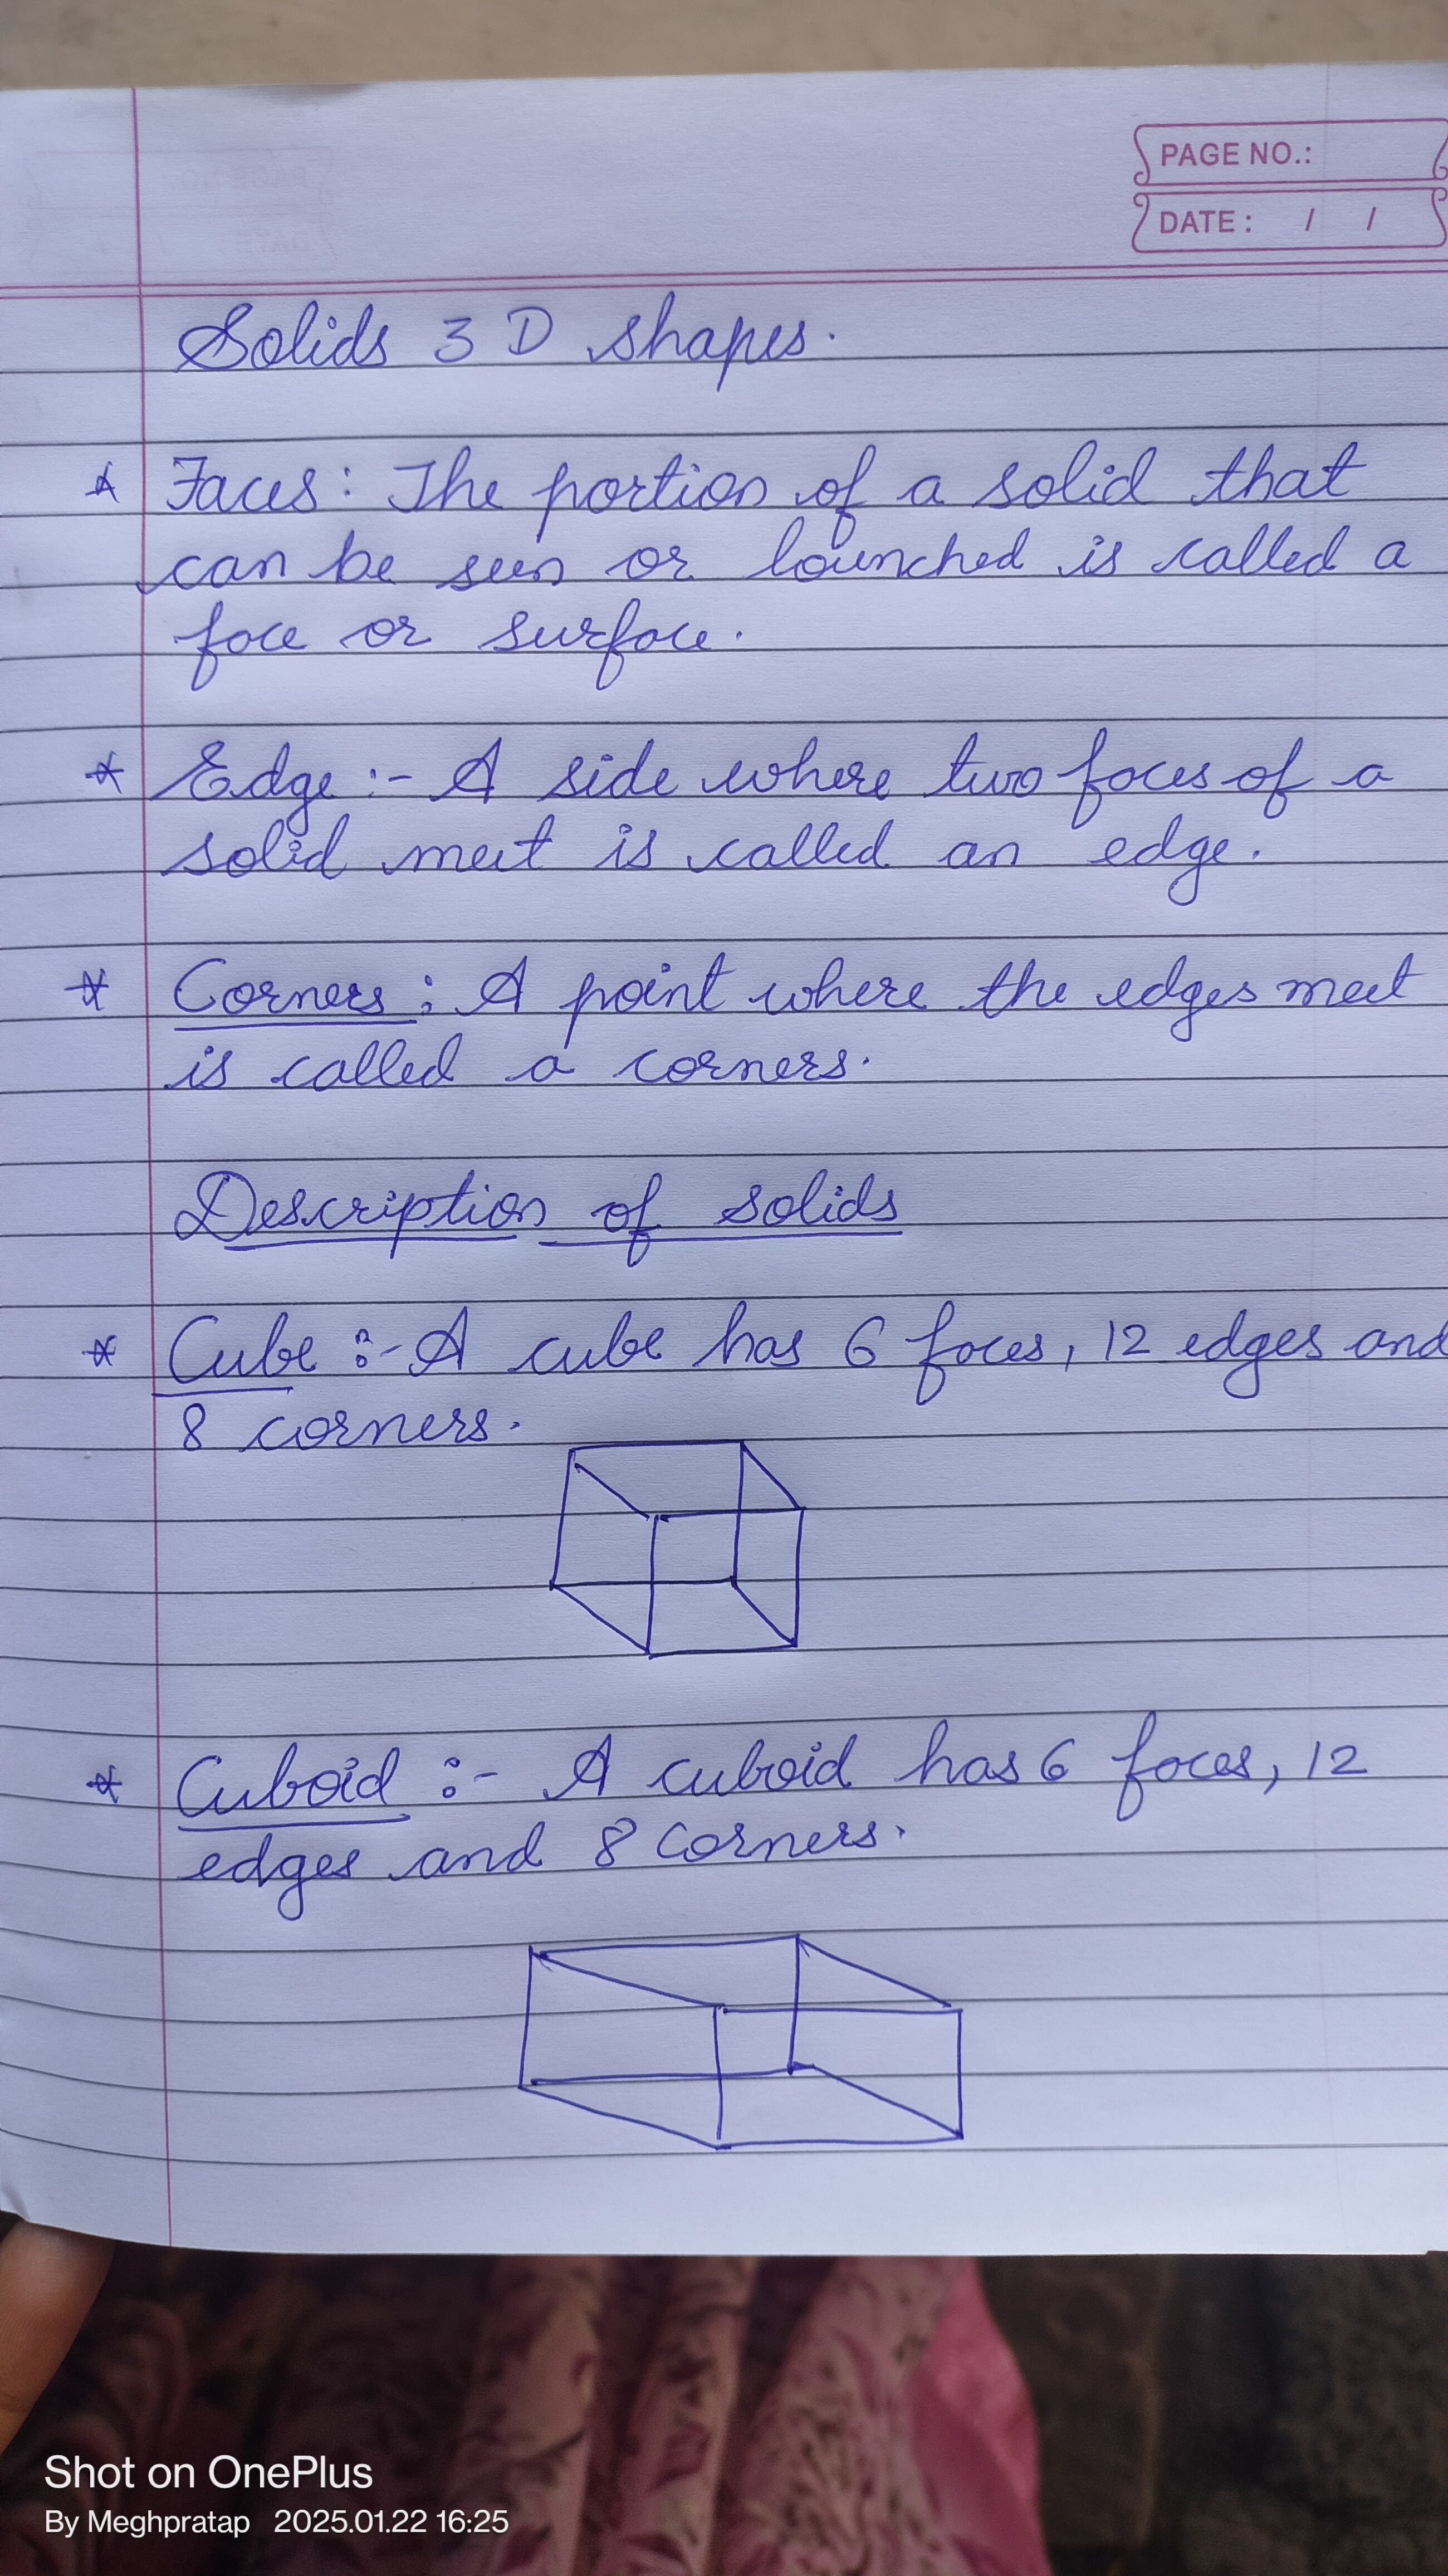 PAGE NO.:
DATE: / /
Solids 3 D shapes.
* Faces: The portion of a solid that
can be seen or lounched is called a
foce or surfoce.
* Edge :- A side where two foces of a
solid meet is called an edge.
* Corners : A point where the edges meet
is called a corners.
Description of solids
* Cube :- A cube has 6 foces, 12 edges and
8 corners.
* Cuboid :- A cuboid has 6 foces, 12
edges and 8 corners.
Shot on OnePlus
By Meghpratap 2025.01.22 16:25